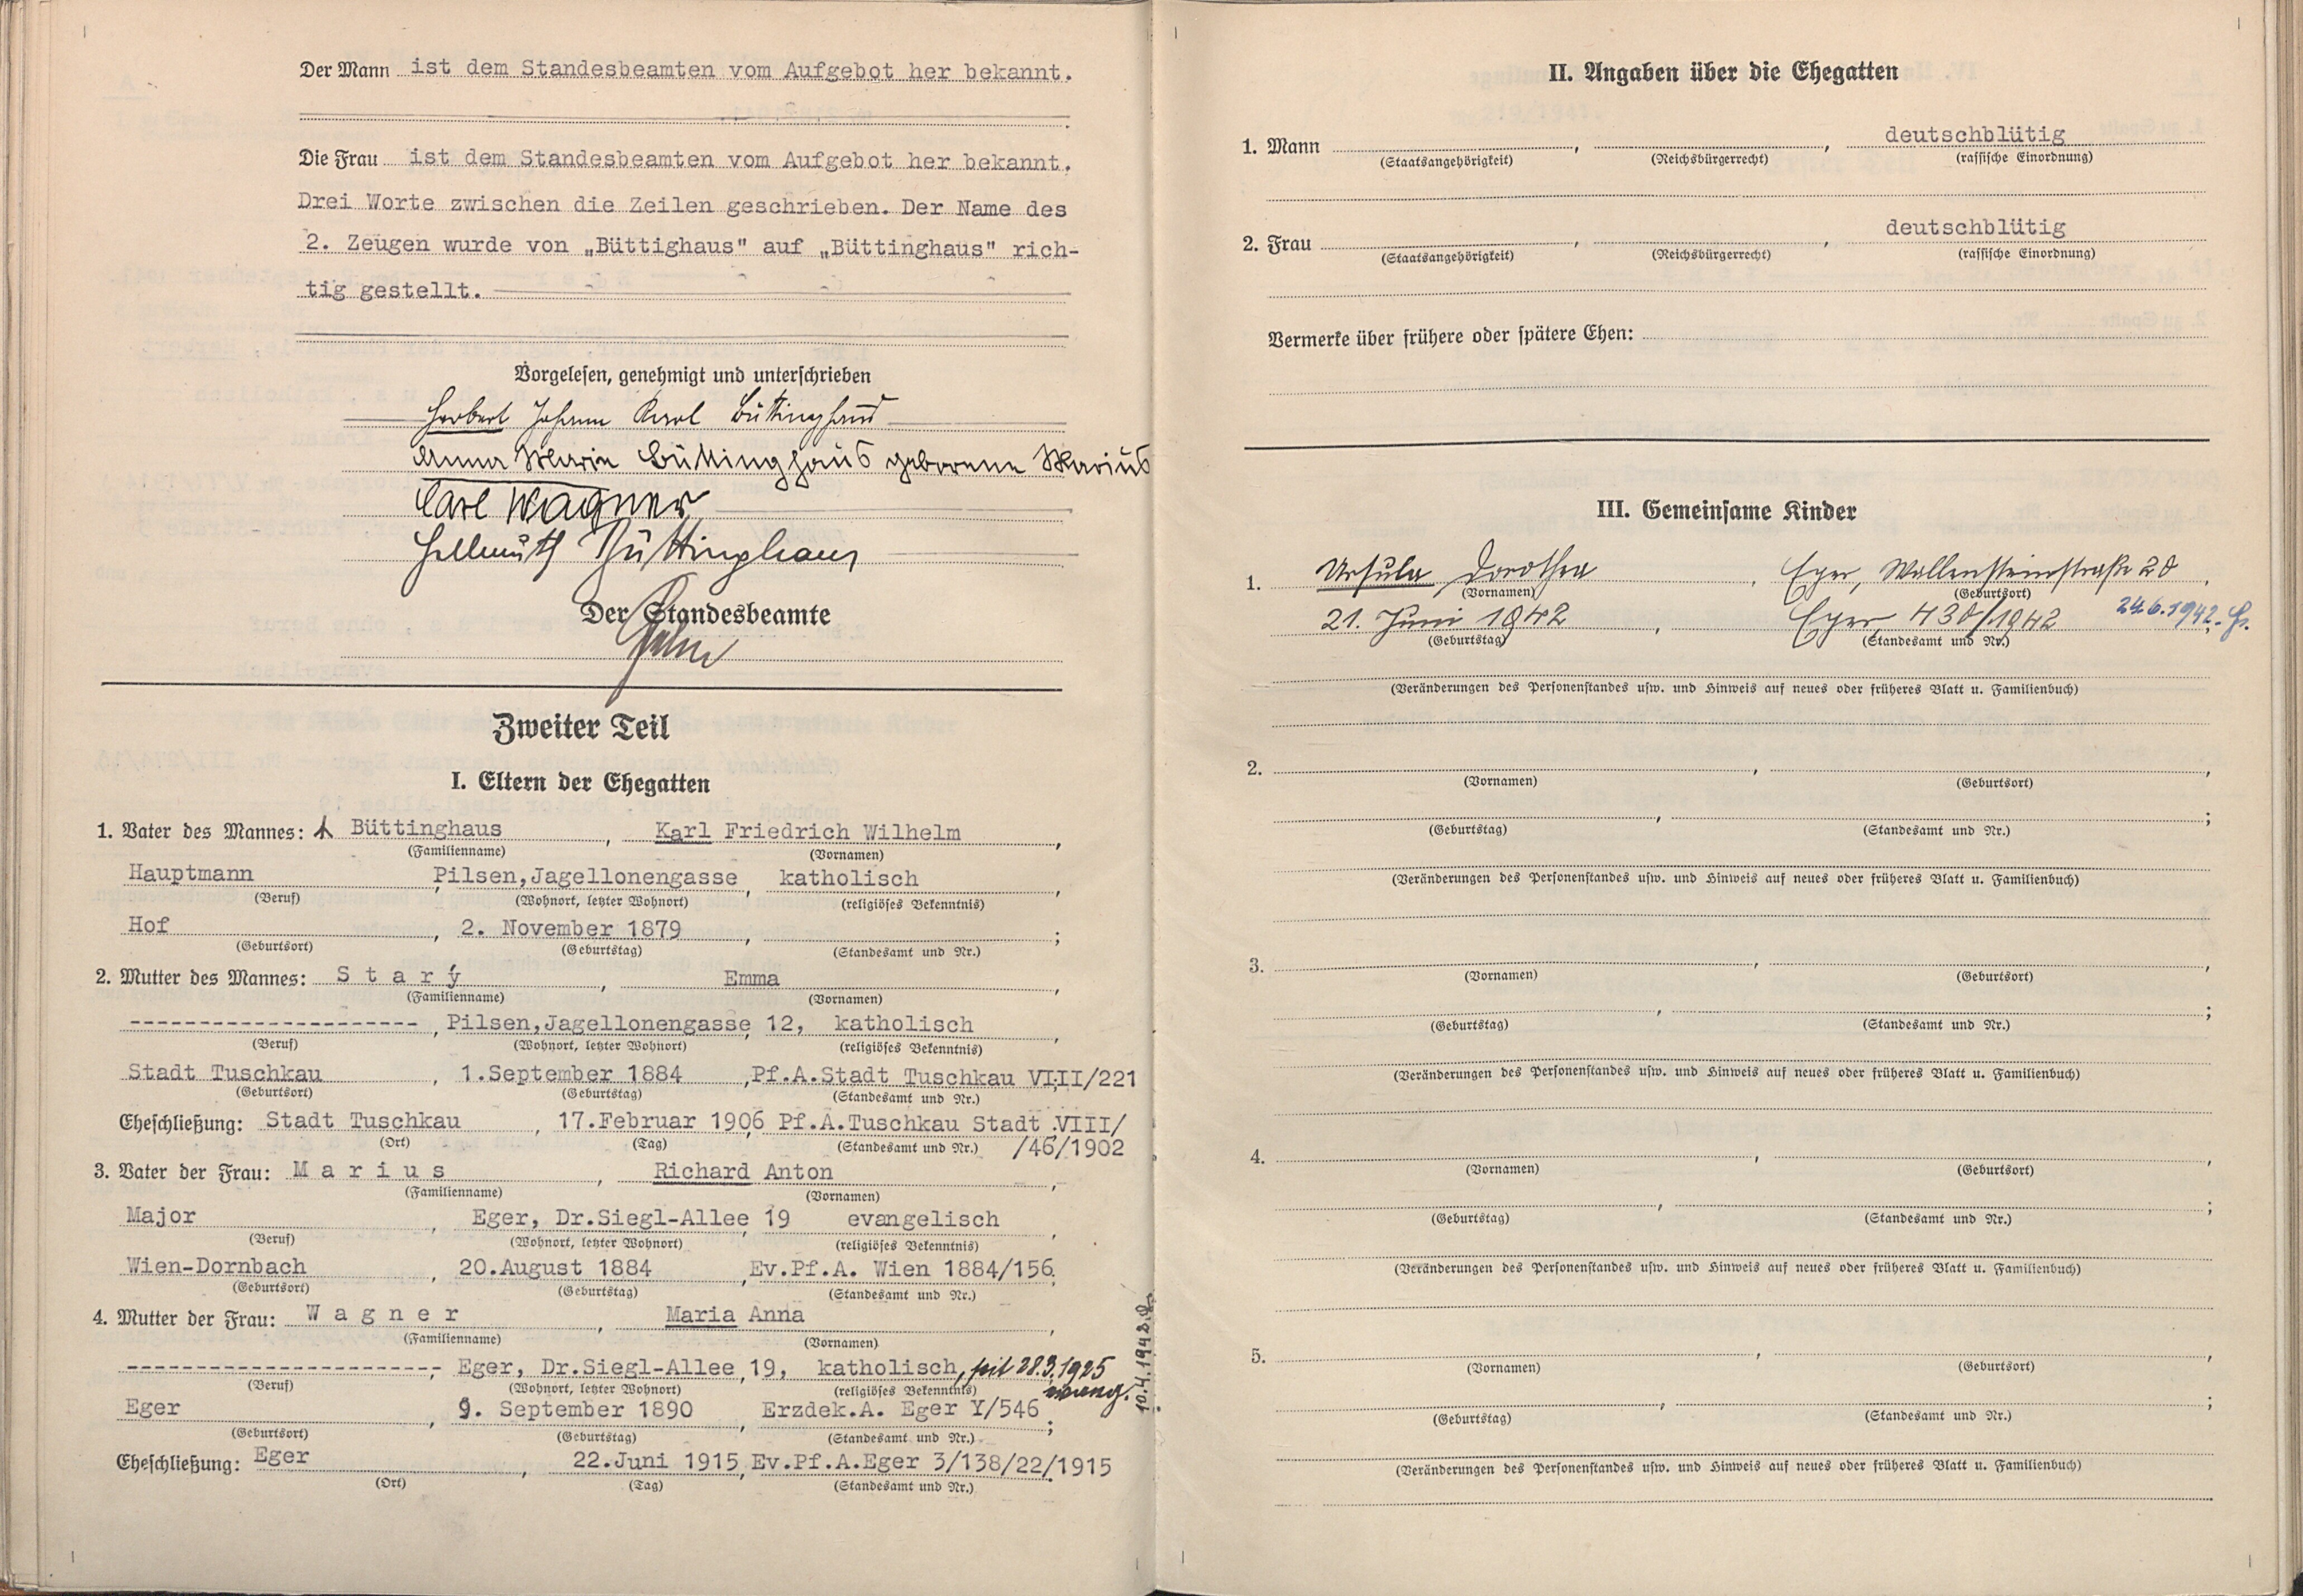 Der Mann ist dem Standesbeamten vom Aufgebot her bekannt.
Die Frau ist dem Standesbeamten vom Aufgebot her bekannt.
Drei Worte zwischen die Zeilen geschrieben. Der Name des
2. Zeugen wurde von „Büttighaus" auf „Büttinghaus" rich-
tig gestellt.
Vorgelesen, genehmigt und unterschrieben
Herbert Johann Karl Büttinghaus
Anna Maria Büttinghaus geborene Marius
Carl Wagner
Hellmuth Büttinghaus
Der Standesbeamte
Zweiter Teil
I. Eltern der Ehegatten
1. Vater des Mannes: Büttinghaus, Karl Friedrich Wilhelm,
(Familienname) (Vornamen)
Hauptmann, Pilsen,Jagellonengasse, katholisch,
(Beruf) (Wohnort, letzter Wohnort) (religiöses Bekenntnis)
Hof, 2. November 1879, ;
(Geburtsort) (Geburtstag) (Standesamt und Nr.)
2. Mutter des Mannes: Starý, Emma,
(Familienname) (Vornamen)
---------------------, Pilsen,Jagellonengasse 12, katholisch,
(Beruf) (Wohnort, letzter Wohnort) (religiöses Bekenntnis)
Stadt Tuschkau, 1.September 1884, Pf.A.Stadt Tuschkau VIII/221
(Geburtsort) (Geburtstag) (Standesamt und Nr.)
Eheschließung: Stadt Tuschkau, 17.Februar 1906, Pf.A.Tuschkau Stadt VIII/
(Ort) (Tag) (Standesamt und Nr.) /46/1902
3. Vater der Frau: Marius, Richard Anton,
(Familienname) (Vornamen)
Major, Eger, Dr.Siegl-Allee 19 evangelisch,
(Beruf) (Wohnort, letzter Wohnort) (religiöses Bekenntnis)
Wien-Dornbach, 20.August 1884, Ev.Pf.A. Wien 1884/156;
(Geburtsort) (Geburtstag) (Standesamt und Nr.)
4. Mutter der Frau: Wagner, Maria Anna,
(Familienname) (Vornamen)
-----------------------, Eger, Dr.Siegl-Allee, 19, katholisch, seit 28.3.1925
(Beruf) (Wohnort, letzter Wohnort) (religiöses Bekenntnis) evang.
10.4.1942
Eger, 9. September 1890, Erzdek.A. Eger Y/546;
(Geburtsort) (Geburtstag) (Standesamt und Nr.)
Eheschließung: Eger, 22.Juni 1915, Ev.Pf.A.Eger 3/138/22/1915
(Ort) (Tag) (Standesamt und Nr.)
II. Angaben über die Ehegatten
1. Mann , , deutschblütig
(Staatsangehörigkeit) (Reichsbürgerrecht) (rassische Einordnung)
2. Frau , , deutschblütig
(Staatsangehörigkeit) (Reichsbürgerrecht) (rassische Einordnung)
Vermerke über frühere oder spätere Ehen:
III. Gemeinsame Kinder
1. Ursula Dorothea, Eger, Wallensteinstraße 20,
(Vornamen) (Geburtsort)
21. Juni 1942, Eger 430/1942 24.6.1942.
(Geburtstag) (Standesamt und Nr.)
(Veränderungen des Personenstandes usw. und Hinweis auf neues oder früheres Blatt u. Familienbuch)
2. , ,
(Vornamen) (Geburtsort)
, ;
(Geburtstag) (Standesamt und Nr.)
(Veränderungen des Personenstandes usw. und Hinweis auf neues oder früheres Blatt u. Familienbuch)
3. , ,
(Vornamen) (Geburtsort)
, ;
(Geburtstag) (Standesamt und Nr.)
(Veränderungen des Personenstandes usw. und Hinweis auf neues oder früheres Blatt u. Familienbuch)
4. , ,
(Vornamen) (Geburtsort)
, ;
(Geburtstag) (Standesamt und Nr.)
(Veränderungen des Personenstandes usw. und Hinweis auf neues oder früheres Blatt u. Familienbuch)
5. , ,
(Vornamen) (Geburtsort)
, ;
(Geburtstag) (Standesamt und Nr.)
(Veränderungen des Personenstandes usw. und Hinweis auf neues oder früheres Blatt u. Familienbuch)